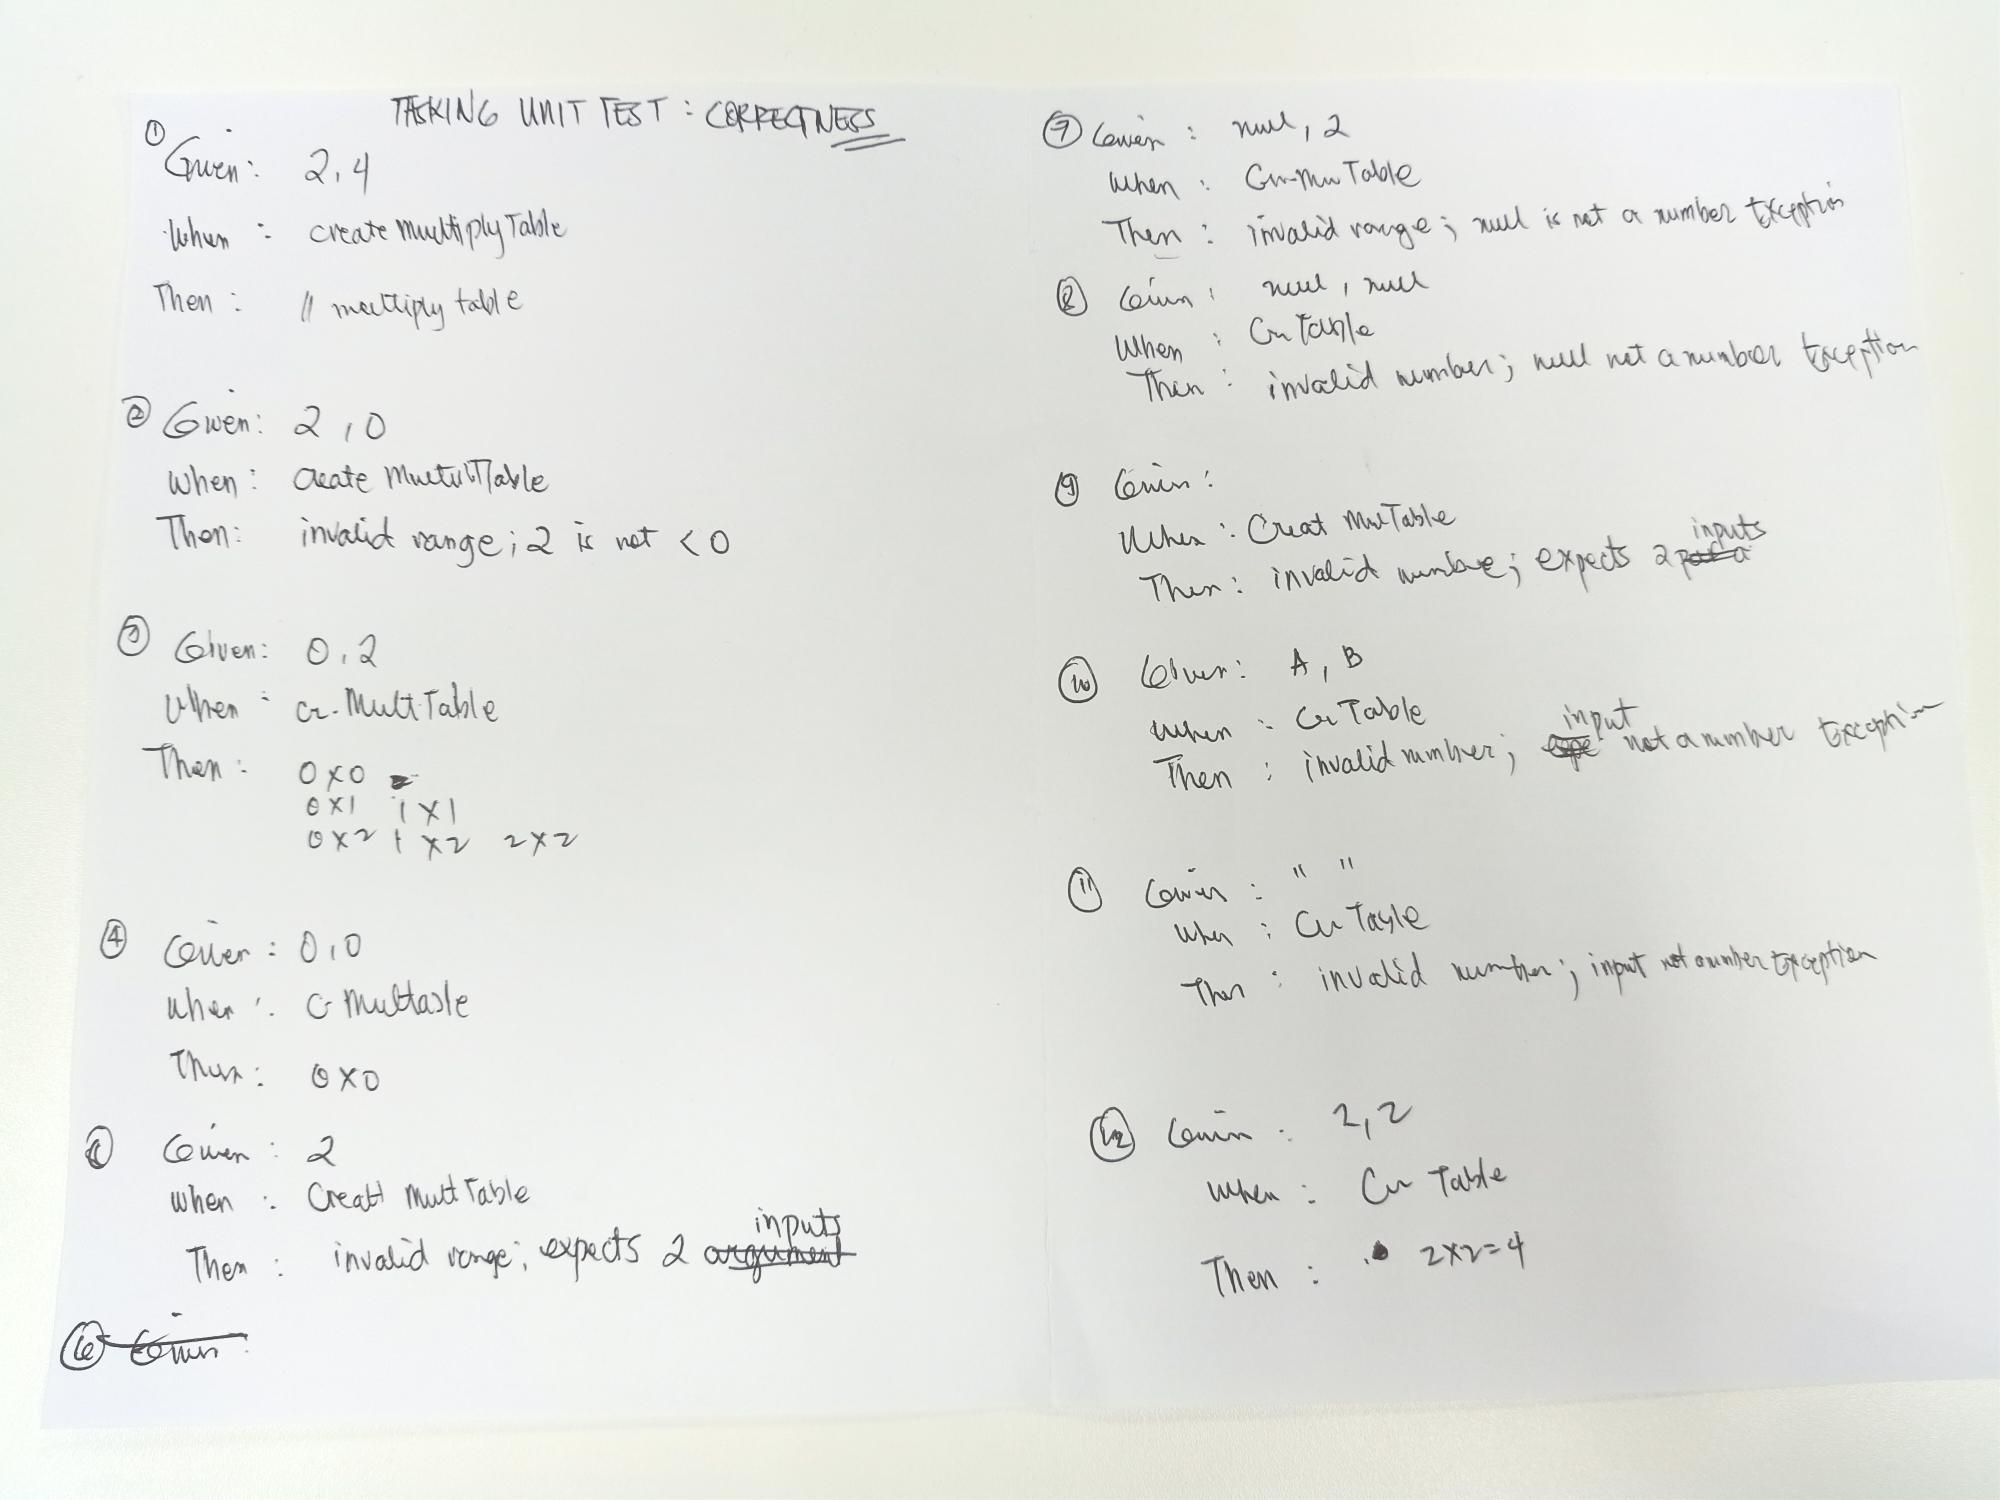 TASKING UNIT TEST : CORRECTNESS
① Given: 2, 4
When : create multiplyTable
Then : // multiply table
② Given: 2, 0
When: Create MultuTable
Then: invalid range; 2 is not < 0
③ Given: 0, 2
When : cr. Mult Table
Then : 0x0
0x1 1x1
0x2 1x2 2x2
④ Given : 0, 0
When : Cr Multable
Then : 0x0
Given : 2
When : Creat Mult Table
Then : invalid range; expects 2 inputs
⑥ Given :
⑦ Given : null, 2
When : Cr Mu Table
Then : invalid range; null is not a number Exception
⑧ Given : null, null
When : Cr Table
Then : invalid number; null not a number Exception
⑨ Given :
When : Creat MulTable
Then : invalid number; expects 2 inputs
⑩ Given : A, B
When : Cr Table
Then : invalid number; input not a number Exception
⑪ Given : " "
When : Cr Table
Then : invalid number; input not a number Exception
⑫ Given : 2, 2
When : Cr Table
Then : 2x2=4